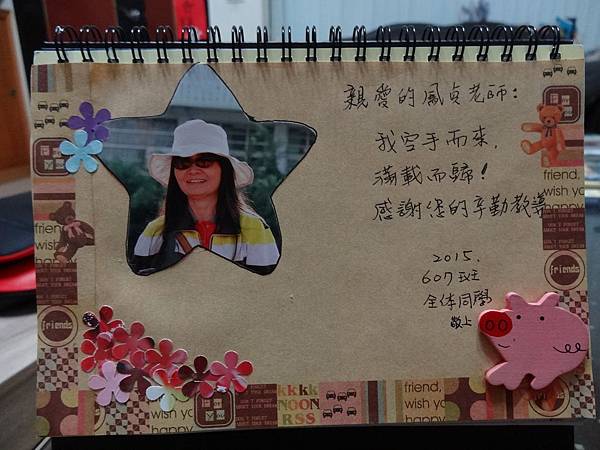 親愛的鳳貞老師：
我空手而來，
滿載而歸！
感謝您的辛勤教導
2015.
607班
全体同學
敬上
friend,
wish you
happy
friends
friend,
wish
happy
friends
friend,
wish yo
happy
kkkk
NOON
RSS
friend,
wish yo
happy